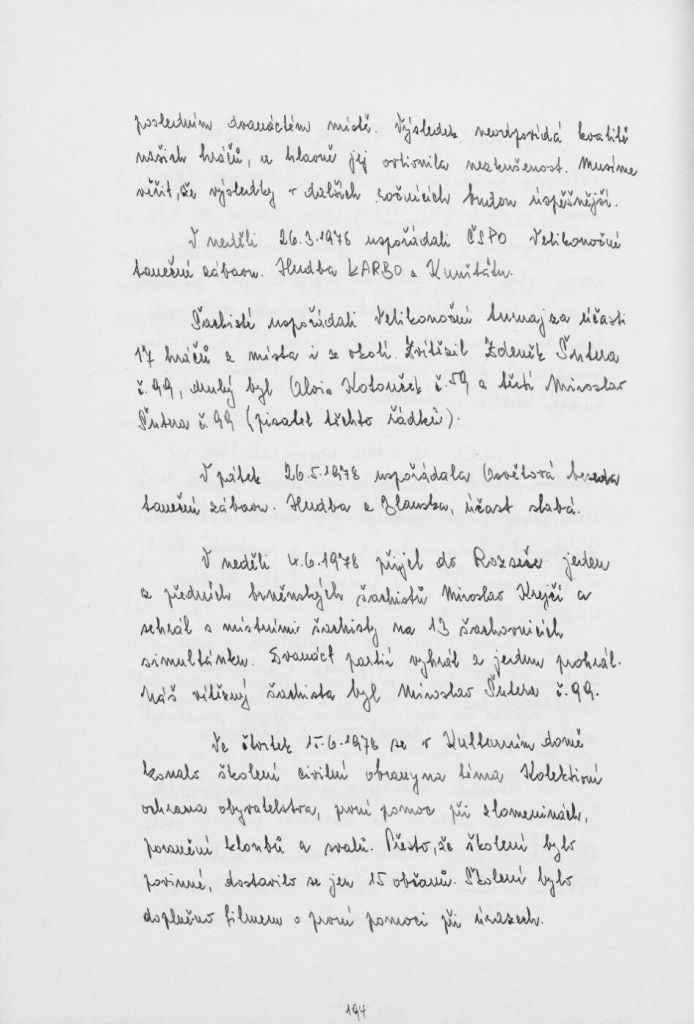 posledním dvanáctém místě. Výsledek neodpovídá kvalitě
našich hráčů, a hlavně jej ovlivnila nezkušenost. Musíme
věřit, že výsledky v dalších ročnících budou úspěšnější.
V neděli 26.3.1978 uspořádali ČSPO Velikonoční
taneční zábavu. Hudba KARBO z Kunštátu.
Šachisté uspořádali Velikonoční turnaj za účasti
17 hráčů z místa i z okolí. Zvítězil Zdeněk Šutera
č.99, druhý byl Alois Kotouček č.59 a třetí Miroslav
Šutera č.99 (pisatel těchto řádků).
V pátek 26.5.1978 uspořádala Osvětová beseda
taneční zábavu. Hudba z Blanska, účast slabá.
V neděli 4.6.1978 přijel do Rozseče jeden
z předních brněnských šachistů Miroslav Krejčí a
sehrál s místními šachisty na 13 šachovnicích
simultánku. Dvanáct partií vyhrál a jednu prohrál.
Náš vítězný šachista byl Miroslav Šutera č.99.
Ve čtvrtek 15.6.1978 se v Kulturním domě
konalo školení civilní obrany na téma Kolektivní
ochrana obyvatelstva, první pomoc při zlomeninách,
poranění kloubů a svalů. Přesto, že školení bylo
povinné, dostavilo se jen 15 občanů. Školení bylo
doplněno filmem o první pomoci při úrazech.
194